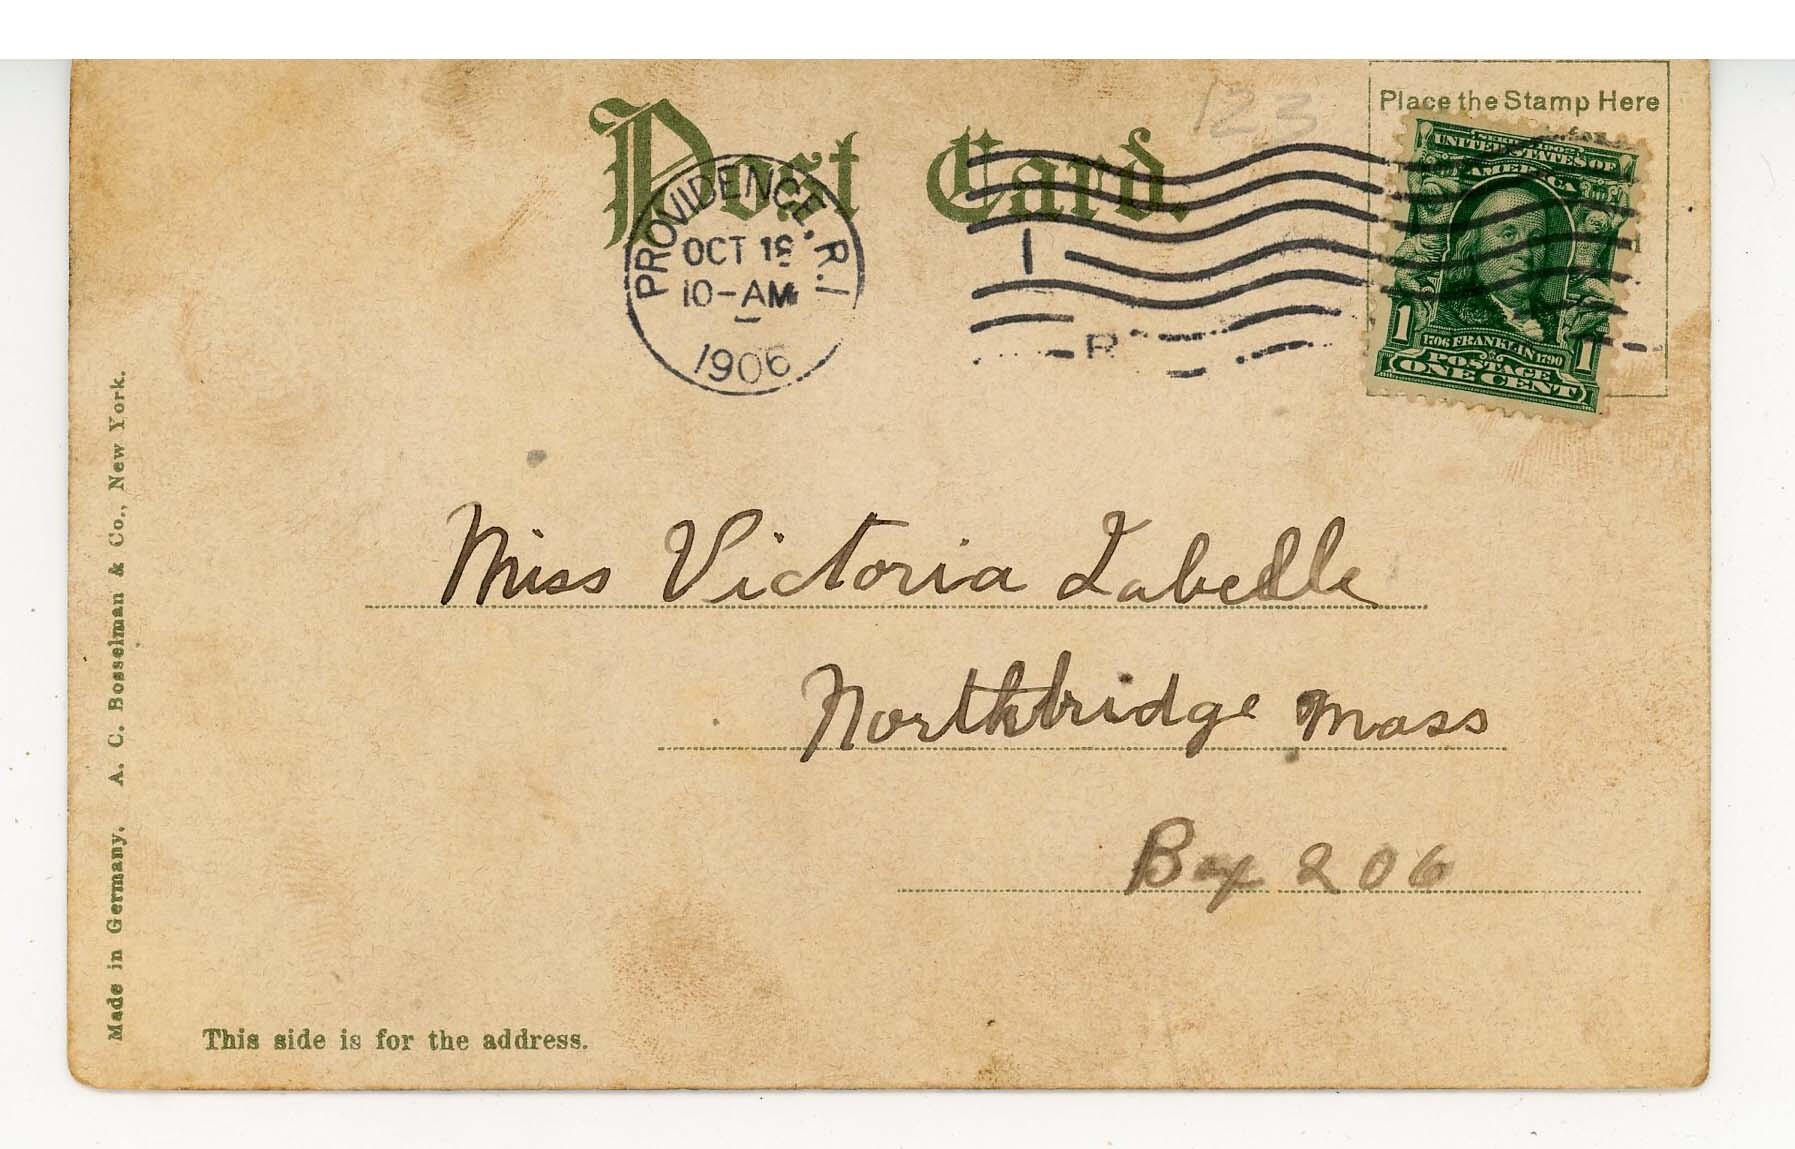 Post Card.
123
Place the Stamp Here
UNITED STATES OF
AMERICA
1 1
1706 FRANKLIN 1790
POSTAGE
ONE CENT
PROVIDENCE, R.I
OCT
10-AM
1906
1
R
Miss Victoria Labelle
Northbridge Mass
Box 206
This side is for the address.
Made in Germany. A. C. Bosselman & Co., New York.